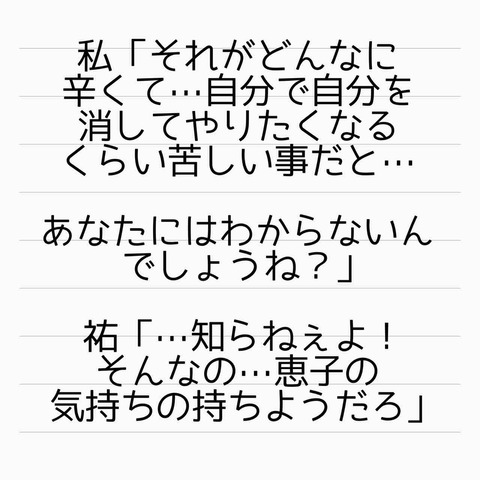 私「それがどんなに
辛くて…自分で自分を
消してやりたくなる
くらい苦しい事だと…
あなたにはわからないん
でしょうね？」
祐「…知らねぇよ！
そんなの…恵子の
気持ちの持ちようだろ」